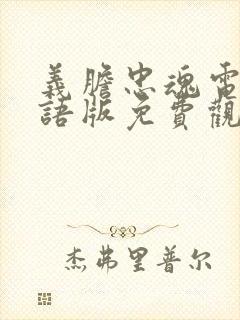 義膽忠魂電
語版免費觀
杰弗里普尔